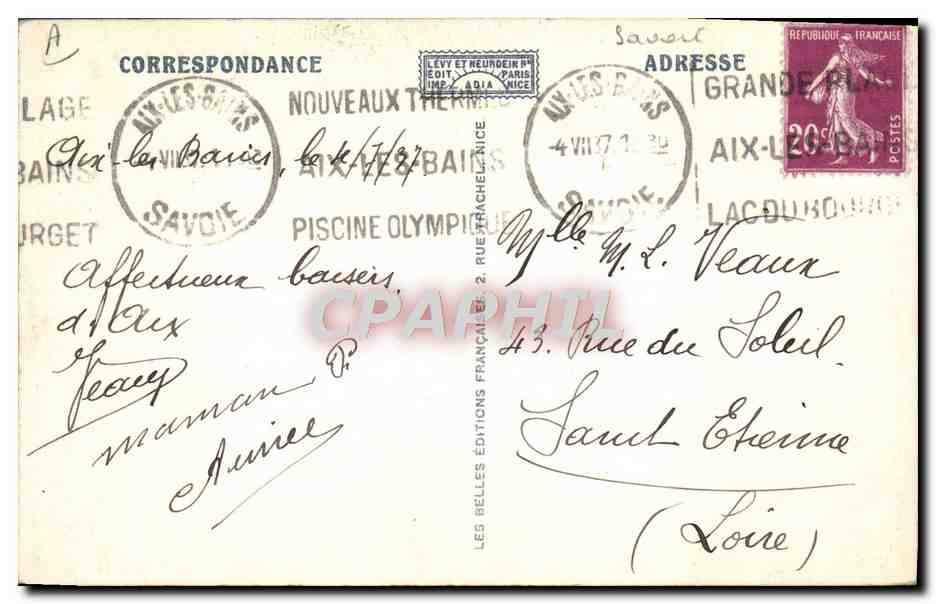 A
Savoie
CORRESPONDANCE
LÉVY ET NEURDEIN Rs
ÉDIT PARIS
IMP. ADIA NICE
ADRESSE
REPUBLIQUE FRANÇAISE
20c
POSTES
LAGE
BAINS
URGET
AIX-LES-BAINS
4 VII
SAVOIE
NOUVEAUX THERMES
AIX-LES-BAINS
PISCINE OLYMPIQUE
AIX-LES-BAINS
4 VII 37
SAVOIE
GRANDE PLA
AIX-LES-BAINS
LAC DU BOURGE
Aix les Bains, le 4/7/37
Affectueux baisers
d'Aix
maman P.
Aimée
CPAPHIL
LES BELLES ÉDITIONS FRANÇAISES, 2, RUE TRACHEL, NICE
Mlle M. L. Veaux
43. Rue du Soleil
Saint Etienne
(Loire)